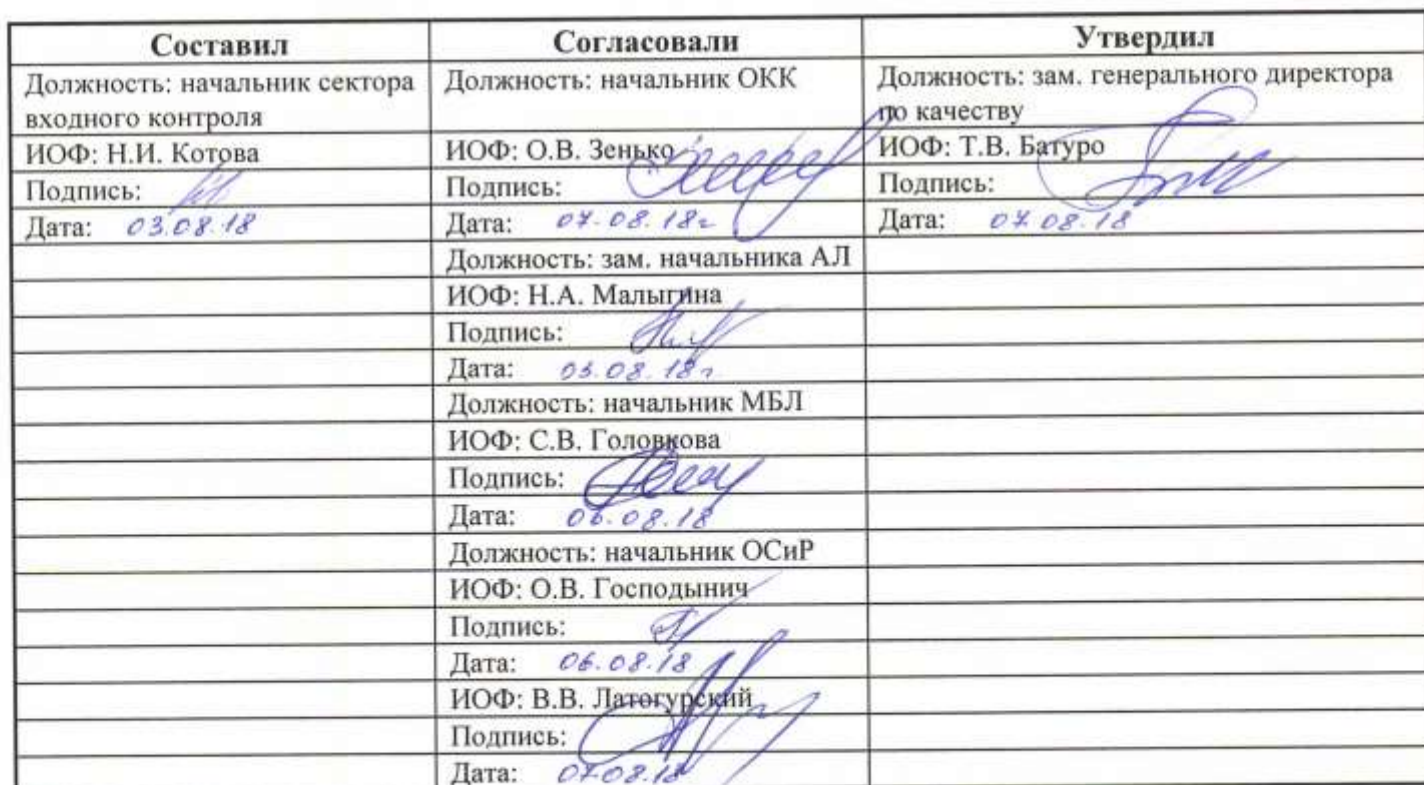 Составил Согласовали Утвердил
Должность: начальник сектора Должность: начальник ОКК Должность: зам. генерального директора
входного контроля по качеству
ИОФ: Н.И. Котова ИОФ: О.В. Зенько ИОФ: Т.В. Батуро
Подпись: Подпись: Подпись:
Дата: 03.08.18 Дата: 07.08.18г Дата: 07.08.18
Должность: зам. начальника АЛ
ИОФ: Н.А. Малыгина
Подпись:
Дата: 03.08.18г
Должность: начальник МБЛ
ИОФ: С.В. Головкова
Подпись:
Дата: 06.08.18
Должность: начальник ОСиР
ИОФ: О.В. Господынич
Подпись:
Дата: 06.08.18
ИОФ: В.В. Латогурский
Подпись:
Дата: 07.08.18